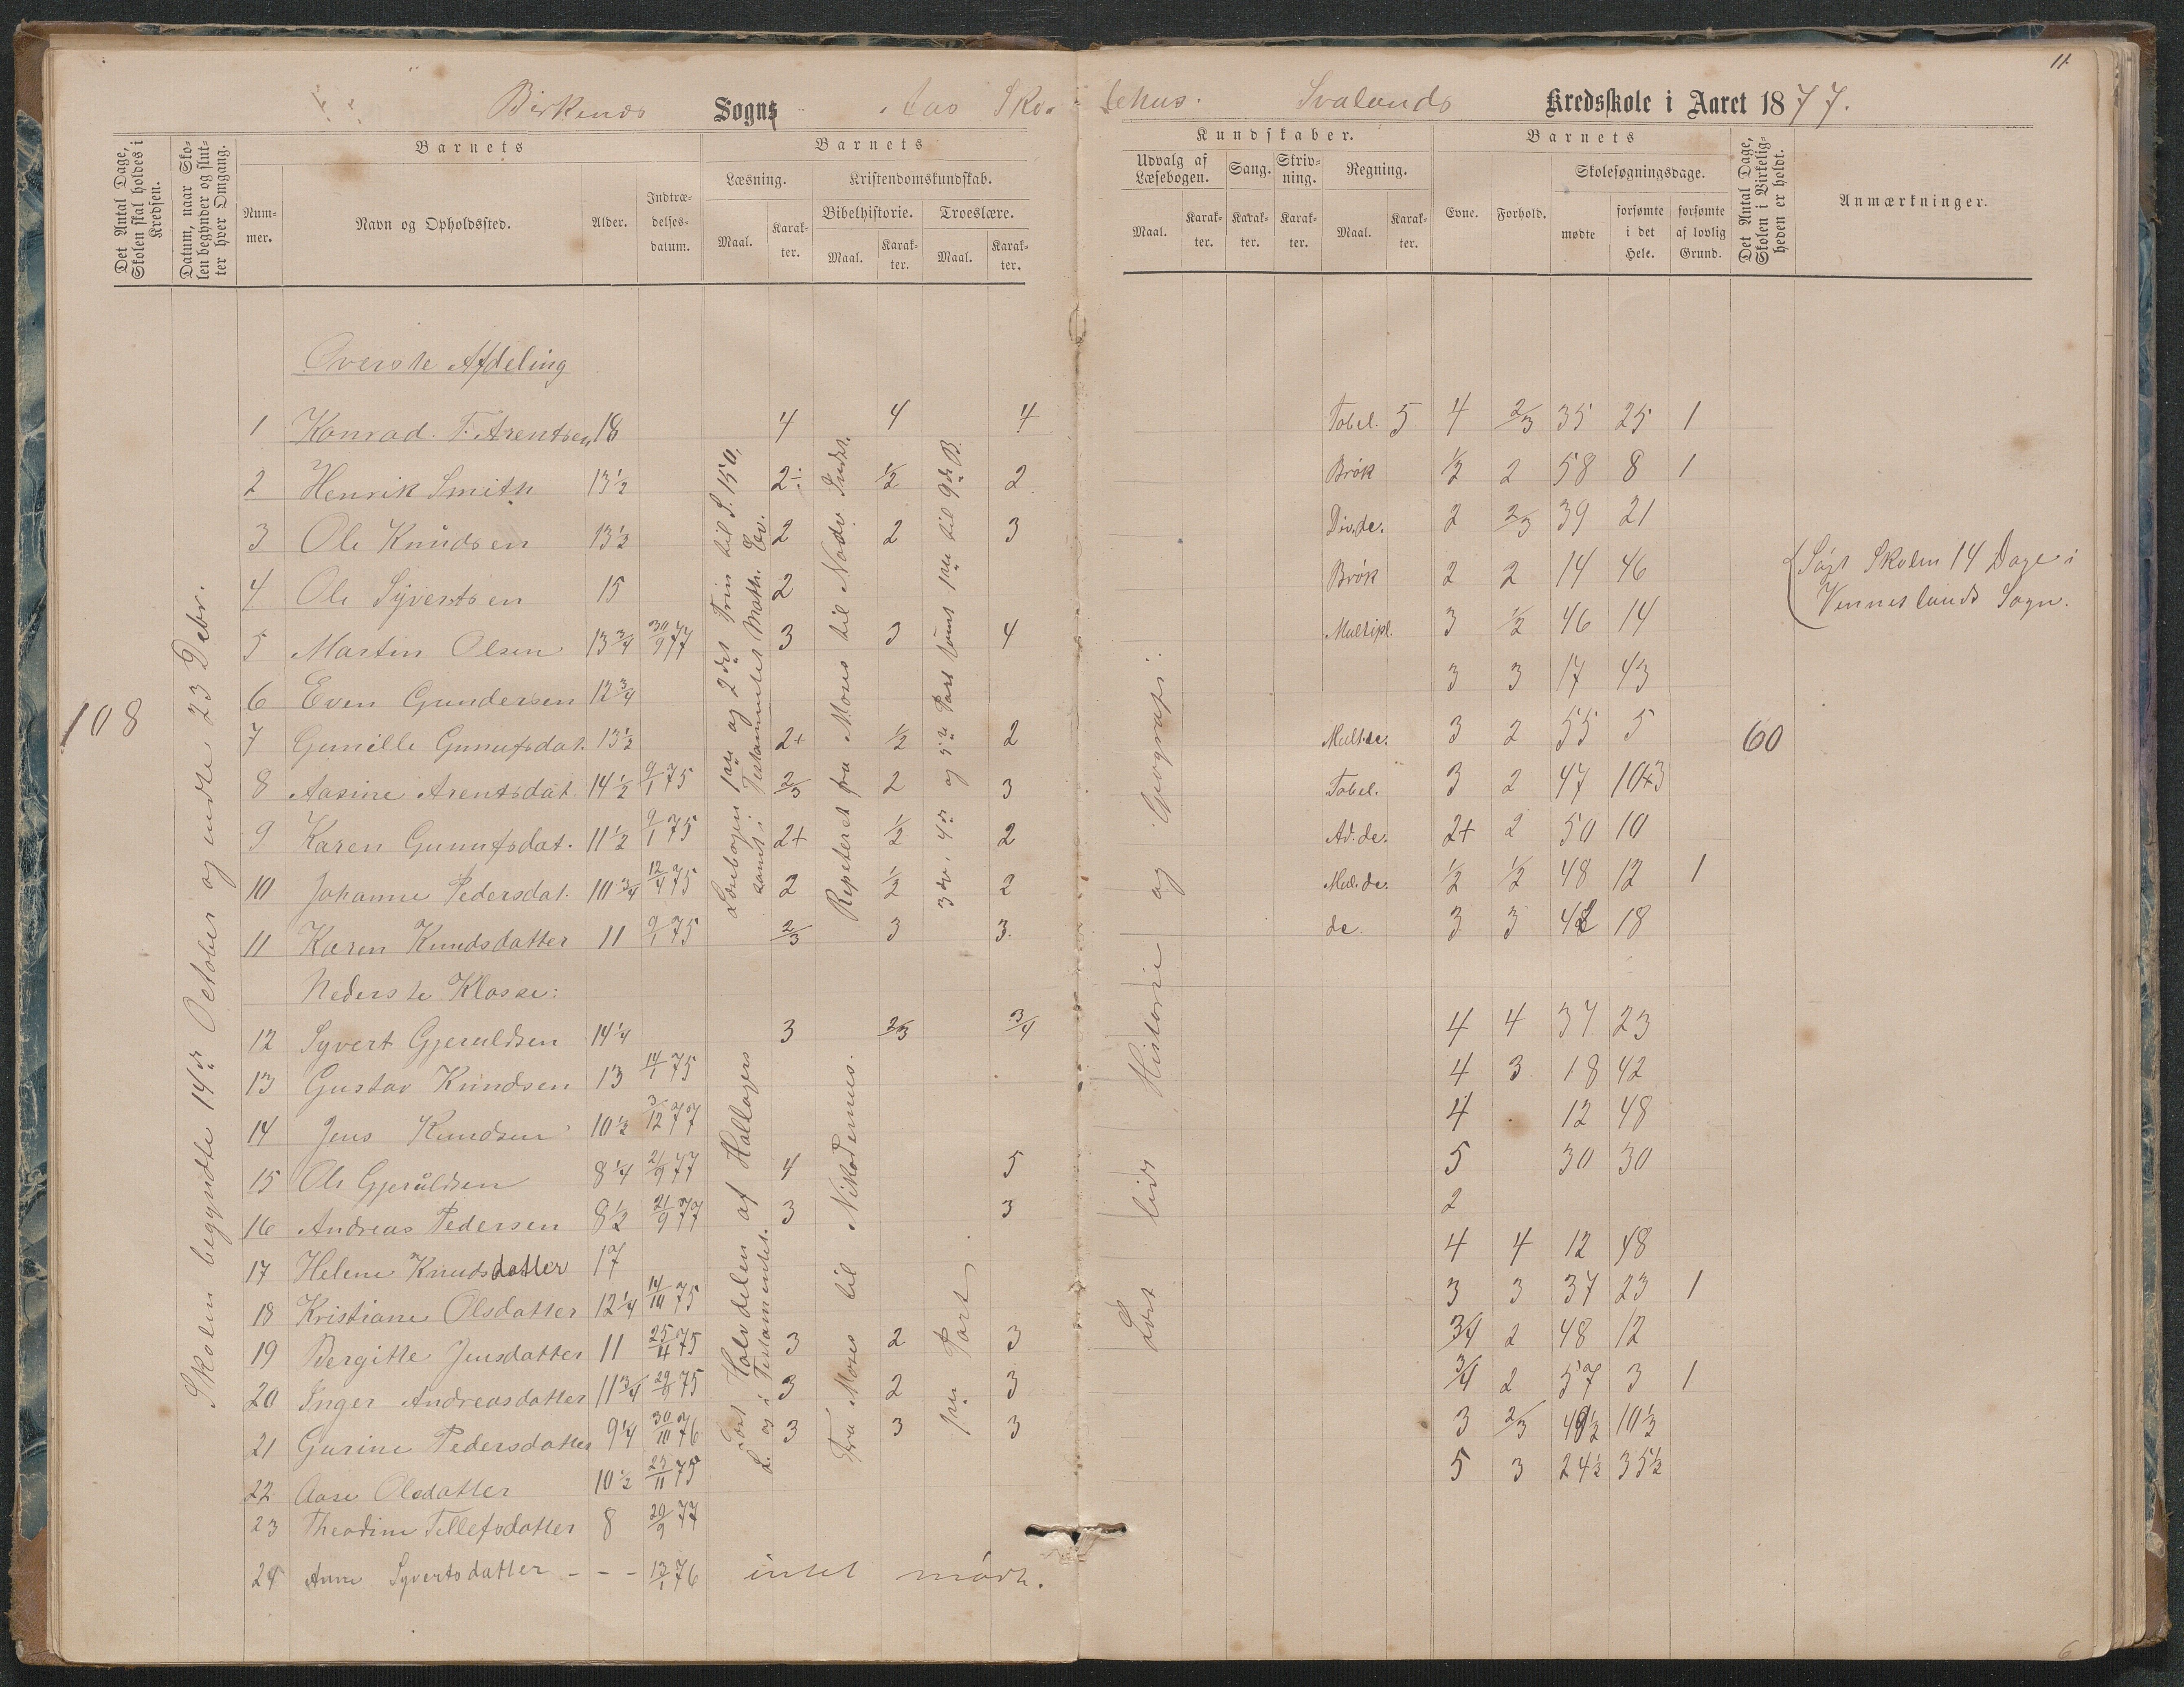 11
Birkenes Sogns Aas Skolehus. Svalands Kredsskole i Aaret 1877.
Det Antal Dage, Skolen skal holdes i Kredsen.
Datum, naar Skolen begynder og slutter hver Omgang.
Barnets
Nummer.
Navn og Opholdssted.
Alder.
Indtrædelsesdatum.
Barnets
Læsning.
Kristendomskundskab.
Bibelhistorie.
Troeslære.
Maal.
Karakter.
Maal.
Karakter.
Maal.
Karakter.
Kundskaber.
Udvalg af Læsebogen.
Sang.
Skrivning.
Regning.
Maal.
Karakter.
Karakter.
Karakter.
Maal.
Karakter.
Barnets
Evne.
Forhold.
Skolesøgningsdage.
mødte
forsømte i det Hele.
forsømte af lovlig Grund.
Det Antal Dage, Skolen i Virkeligheden er holdt.
Anmærkninger.
108
Skolen begyndte 14de October og endte 23 Debr.
Overste Afdeling
1 Konrad T. Arentsen 18 4 4 4 Tabel. 5 4 2/3 35 25 1
2 Henrik Smith 13½ 2÷ ½ 2 Brøk ½ 2 58 8 1
3 Ole Knudsen 13½ 2 2 3 Div.de. 2 2/3 39 21
4 Ole Syvertsen 15 2 Brøk 2 2 14 46
{Søgt Skolen 14 Dage i
Venneslands Sogn.
5 Martin Olsen 13¾ 30/9 77 3 3 4 Multipl. 3 ½ 46 14
6 Even Gundersen 12¾ 3 3 17 43
7 Gunille Gunufsdat. 13½ 2+ ½ 2 Mult.de. 3 2 55 5 60
8 Aasine Arentsdat 14½ 9/1 75 2/3 2 3 Tabel. 3 2 47 10+3
9 Karen Gunufsdat. 11½ 9/1 75 2+ ½ 2 Ad.de. 2+ 2 50 10
10 Johanne Pedersdat. 10¾ 12/4 75 2 ½ 2 Mul.de. ½ ½ 48 12 1
11 Karen Knudsdatter 11 9/1 75 2/3 3 3. de. 3 3 42 18
Læsebogen 1ste og 2det Trin til S. 150,
samt i Testamentet Math. Ev.
Repeteret fra Moses til Nadv. Indst.
3die, 4de og 5te Part samt 1ste til 9de B.
Læst lidt Historie og Geografi.
Nederste Klasse:
12 Syvert Gjeruldsen 14¼ 3 2/3 3/4 4 4 37 23
13 Gustav Knudsen 13 14/1 75 4 3 18 42
14 Jens Knudsen 10½ 3/12 77 4 12 48
15 Ole Gjeruldsen 8¼ 21/9 77 4 5 5 30 30
16 Andreas Pedersen 8½ 21/9 77 3 3 2
17 Helene Knudsdatter 17 4 4 12 48
18 Kristiane Olsdatter 12¼ 14/10 75 3 3 37 23 1
19 Bergitte Jensdatter 11 25/11 75 3 2 3 3/4 2 48 12
20 Inger Andreasdatter 11¾ 29/9 75 3 2 3 3/4 2 57 3 1
21 Gurine Pedersdatter 9¼ 30/10 76 3 3 3 3 2/3 49½ 10½
22 Aase Olsdatter 10½ 25/11 75 5 3 24½ 35½
23 Theodine Tellefsdatter 8 20/9 77
24 Anne Syvertsdatter - - - 13/1 76 intet mødt.
Læst Halvdelen af Hallagers
L. og i Testamentet.
Fra Moses til Nikodemus.
1ste Part.
6